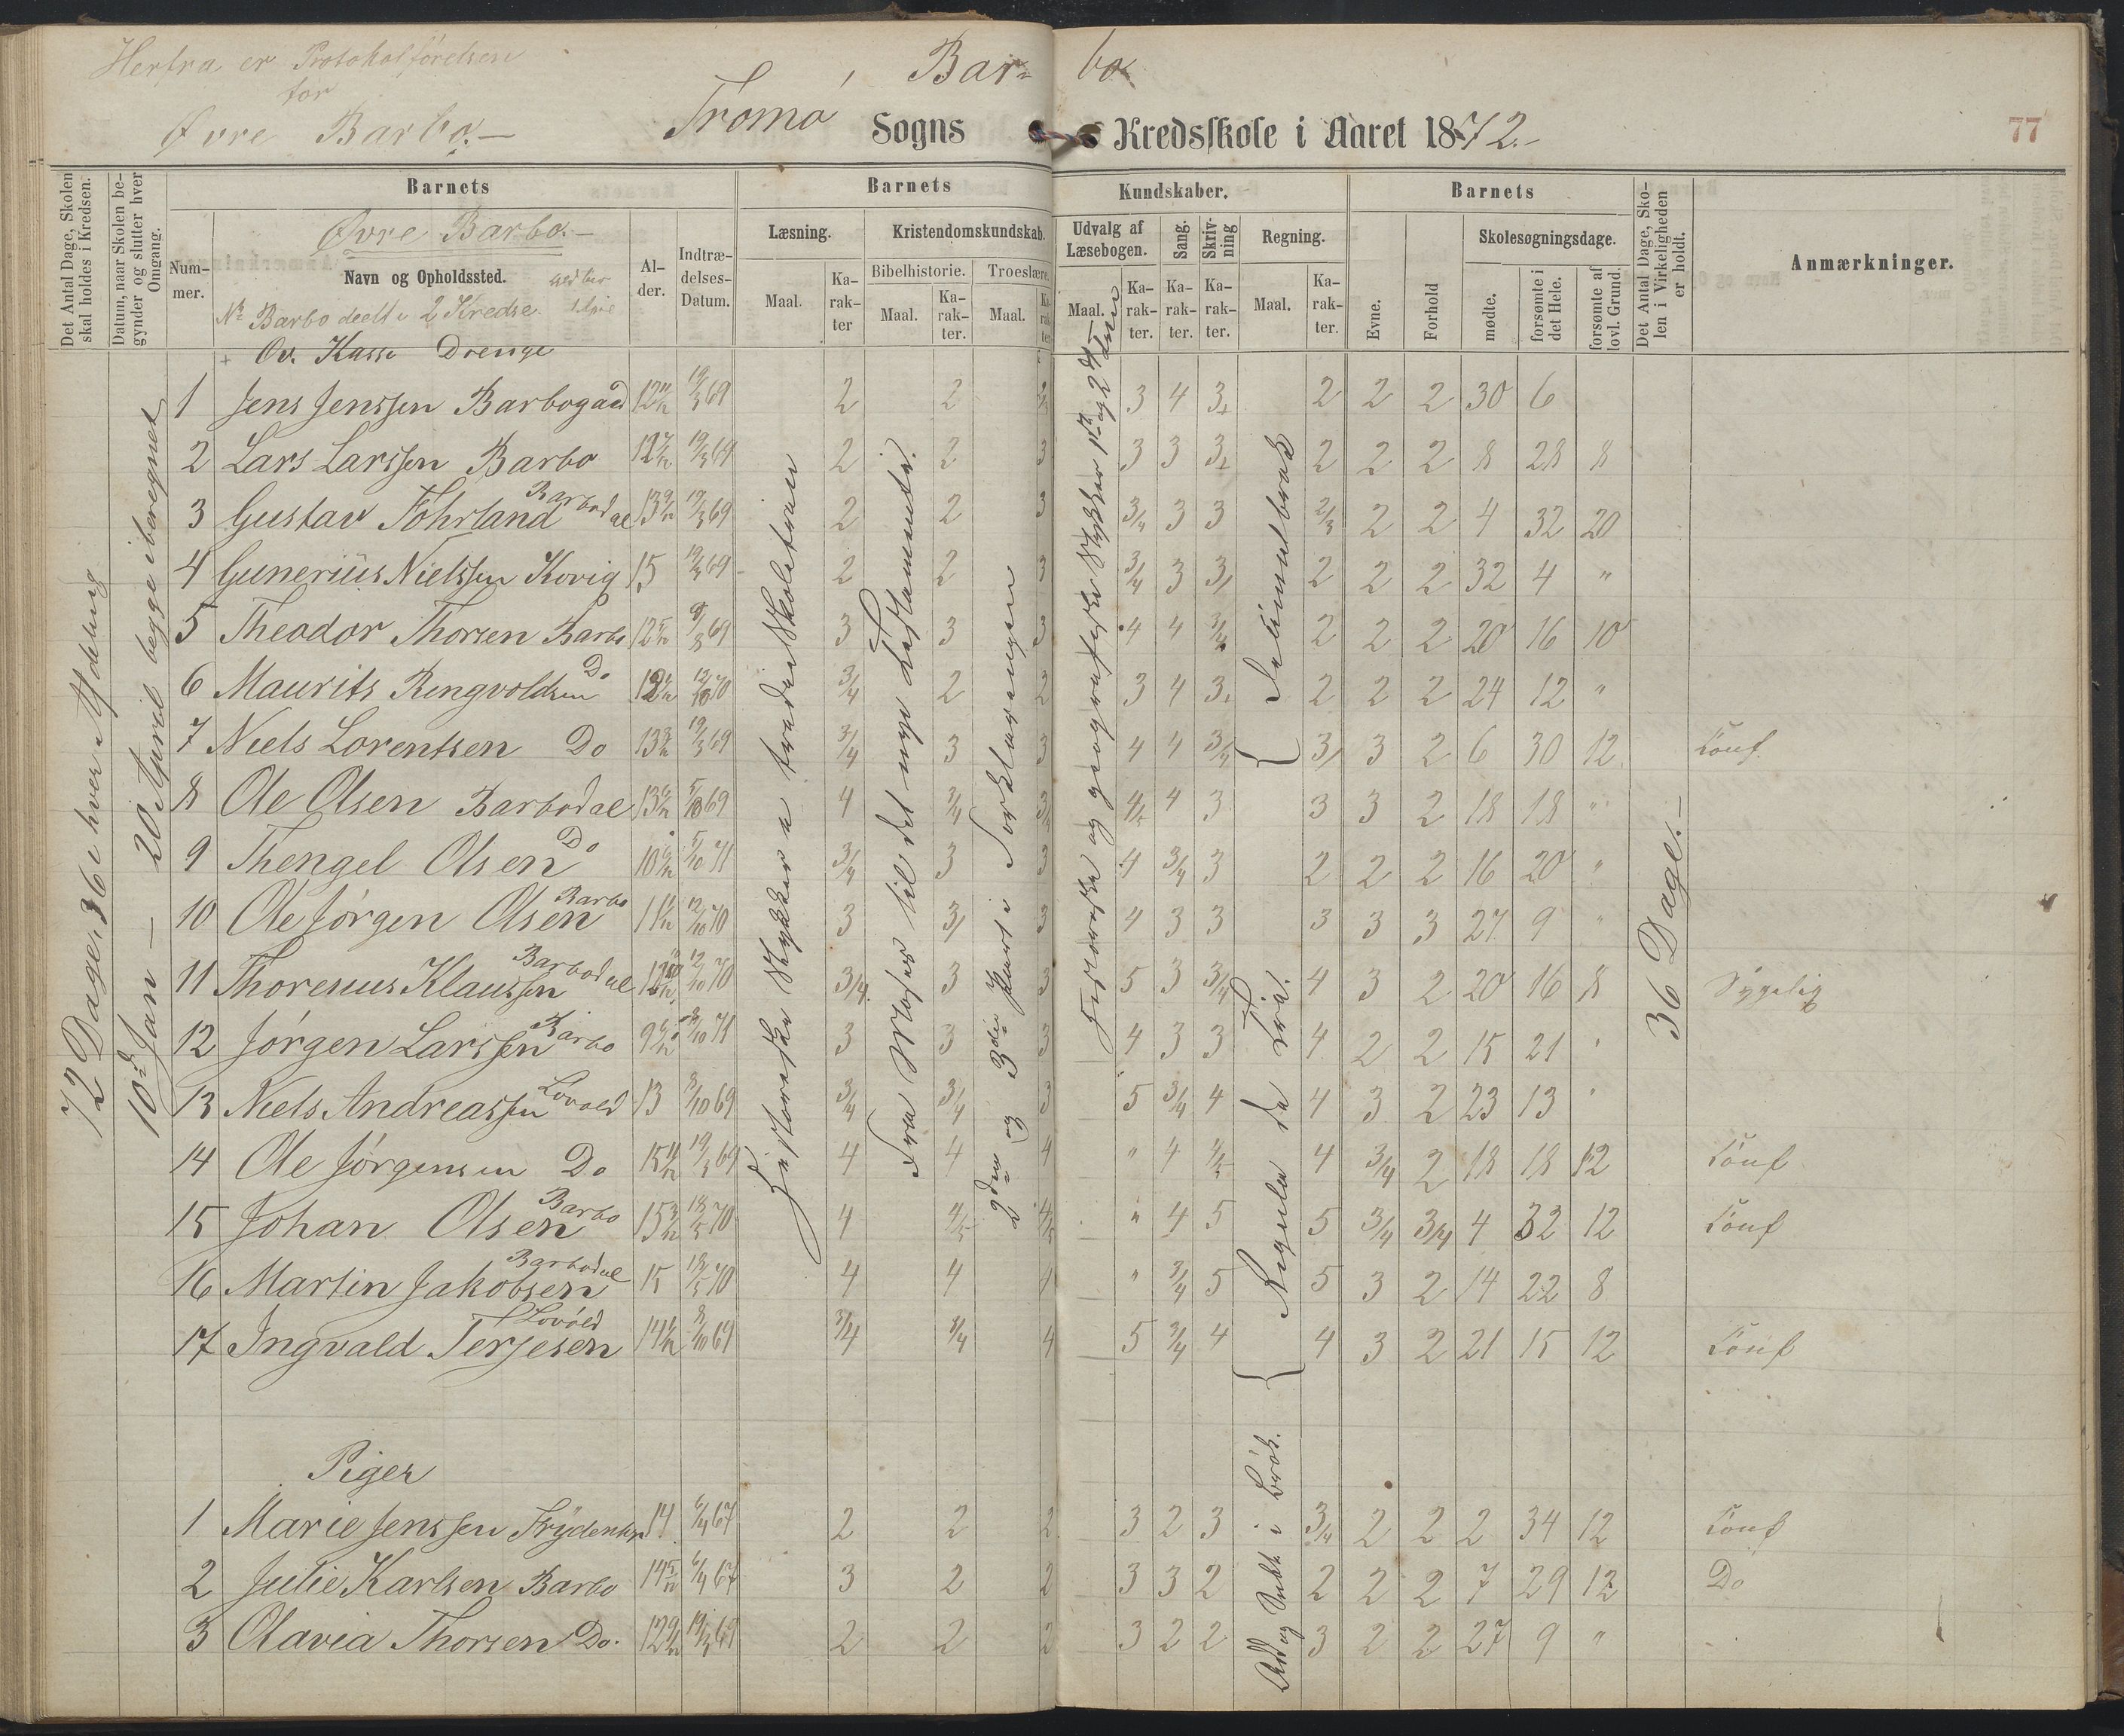 Herfra er Protokolførelsen
for
Øvre Barbo.—
Tromø, Bar- bo
Sogns Kredsskole i Aaret 1872.-
77
Det Antal Dage, Skolen skal holdes i Kredsen.
Datum, naar Skolen begynder og slutter hver Omgang.
Barnets
Barnets
Kundskaber.
Barnets
Det Antal Dage, Skolen i Virkeligheden er holdt.
Anmærkninger.
Nummer.
Øvre Barbo.—
Navn og Opholdssted.
No Barbo deelt i 2 Kredse.
Alder.
Indtrædelses-Datum.
Læsning.
Kristendomskundskab.
Udvalg af Læsebogen.
Sang.
Skrivning
Regning.
Evne.
Forhold
Skolesøgningsdage.
Bibelhistorie.
Troeslære.
Maal.
Karakter
Maal.
Karakter.
Maal.
Karakter
Maal.
Karakter.
Karakter.
Karakter.
Maal.
Karakter.
mødte.
forsømte i det Hele.
forsømte af lovl. Grund.
72 Dage. 36 i hver Afdeling
10d Jan — 20 April begge iberegnet
Historiske Stykker a tredie Skoletrin
Fra Moses til det nye Testamente.
2den og 3die Part i Forklaringen
Historiske og geografiske Stykker 1ste og 2den
Decimalbrøk
Regula de Tri.
Add og Subt i Brøk.
36 Dage.—
Øv. Kasse Drenge
1 Jens Jenssen Barbogaad 12 19/3 69 2 2 3 4 3 2 2 2 30 6
2 Lars Larssen Barbo 12 19/3 69 2 2 3 3 3 3 2 2 2 8 28 8
3 Gustav Fohrland Barbodal 13 19/3 69 2 2 3 3/4 3 3 2/3 2 2 4 32 20
4 Gunerius Nielssen Kovig 15 19/3 69 2 2 3 3/4 3 3 2 2 2 32 4 "
5 Theodor Thorsen Barbo 12 69 3 3 3 4 4 3/4 2 2 2 20 16 10
6 Maurits Rengvoldsen Do 12 12/10 70 3/4 2 2 3 4 3 2 2 2 24 12 "
7 Niels Lorentsen Do 13 19/3 69 3/4 3 3 4 4 3/4 3 3 2 6 30 12 Conf.
8 Ole Olsen Barbodal 13 5/10 69 4 3/4 3/4 4/5 4 3 3 3 2 18 18 "
9 Thengel Olsen Do 10 5/10 71 3/4 3 3 4 3/4 3 2 2 2 16 20 "
10 Ole Jørgen Olsen Barbo 11 12/10 70 3 3 3 4 3 3 3 3 3 27 9 "
11 Thorenius Klaussen Barbodal 12 12/10 70 3/4 3 3 5 3 3/4 4 3 2 20 16 8 Sygelig
12 Jørgen Larssen Barbo 9 71 3 3 3 4 3 3 4 2 2 15 21 "
13 Niels Andreassen Lovold 13 8/10 69 3/4 3/4 3 5 3/4 4 4 3 2 23 13 "
14 Ole Jørgensen Do 15 19/3 69 4 4 4 " 4 4/5 4 3/4 2 18 18 12 Conf
15 Johan Olsen Barbo 15 18/5 70 4 4/5 4/5 " 4 5 5 3/4 3/4 4 32 12 Conf
16 Martin Jakobsen Barbodal 15 18/5 70 4 4 4 " 3/4 5 5 3 2 14 22 8
17 Ingvald Terjesen Lovold 14 8/10 69 3/4 3/4 4 5 3/4 4 4 3 2 21 15 12 Conf
Piger
1 Marie Jenssen 14 6/4 67 2 2 2 3 2 3 3/4 2 2 2 34 12 Conf
2 Julie Karlsen Barbo 14 5/12 6/4 67 3 2 2 3 3 2 2 2 2 7 29 12 Do
3 Olavia Thorsen Do. 12 19/3 69 2 2 2 3 2 2 3 2 2 27 9 "